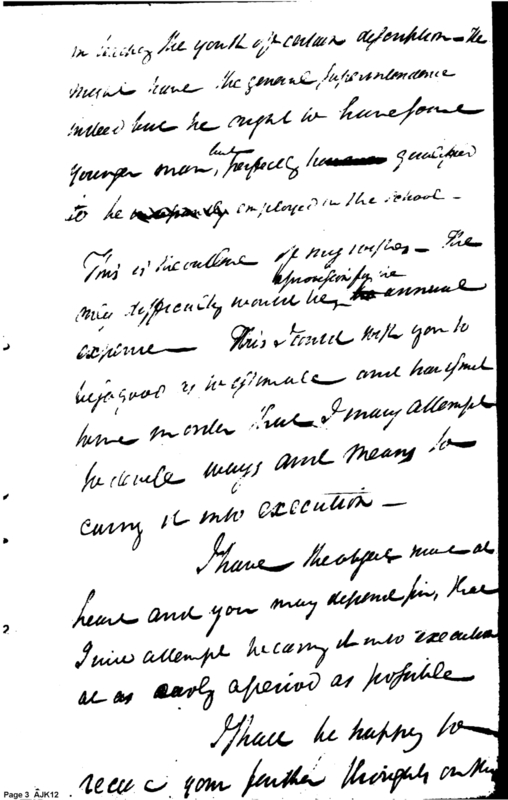 in teaching the youth of a certain description – He
might have the general superintendence
indeed but he ought to have some
younger man, but perfectly qualified
to be employed in the school –
This is the outline of my wishes – The
only difficulty would be, a provision for the annual
expense – This I could wish you to
be so good as to estimate and
in order that I may attempt
to devise ways and means to
carry it into execution –
I have the object much at
heart and you may depend Sir, that
I will attempt to carry it into execution
at as early a period as possible
I shall be happy to
receive your further thoughts on this
2
Page 3 AJK12